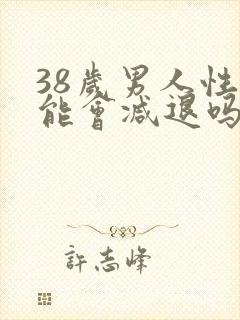 38歲男人性
能會減退嗎
許志峰